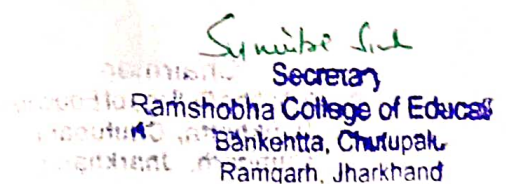 Secretary
Ramshobha College of Educat
Bankehtta, Chutupalu
Ramgarh, Jharkhand